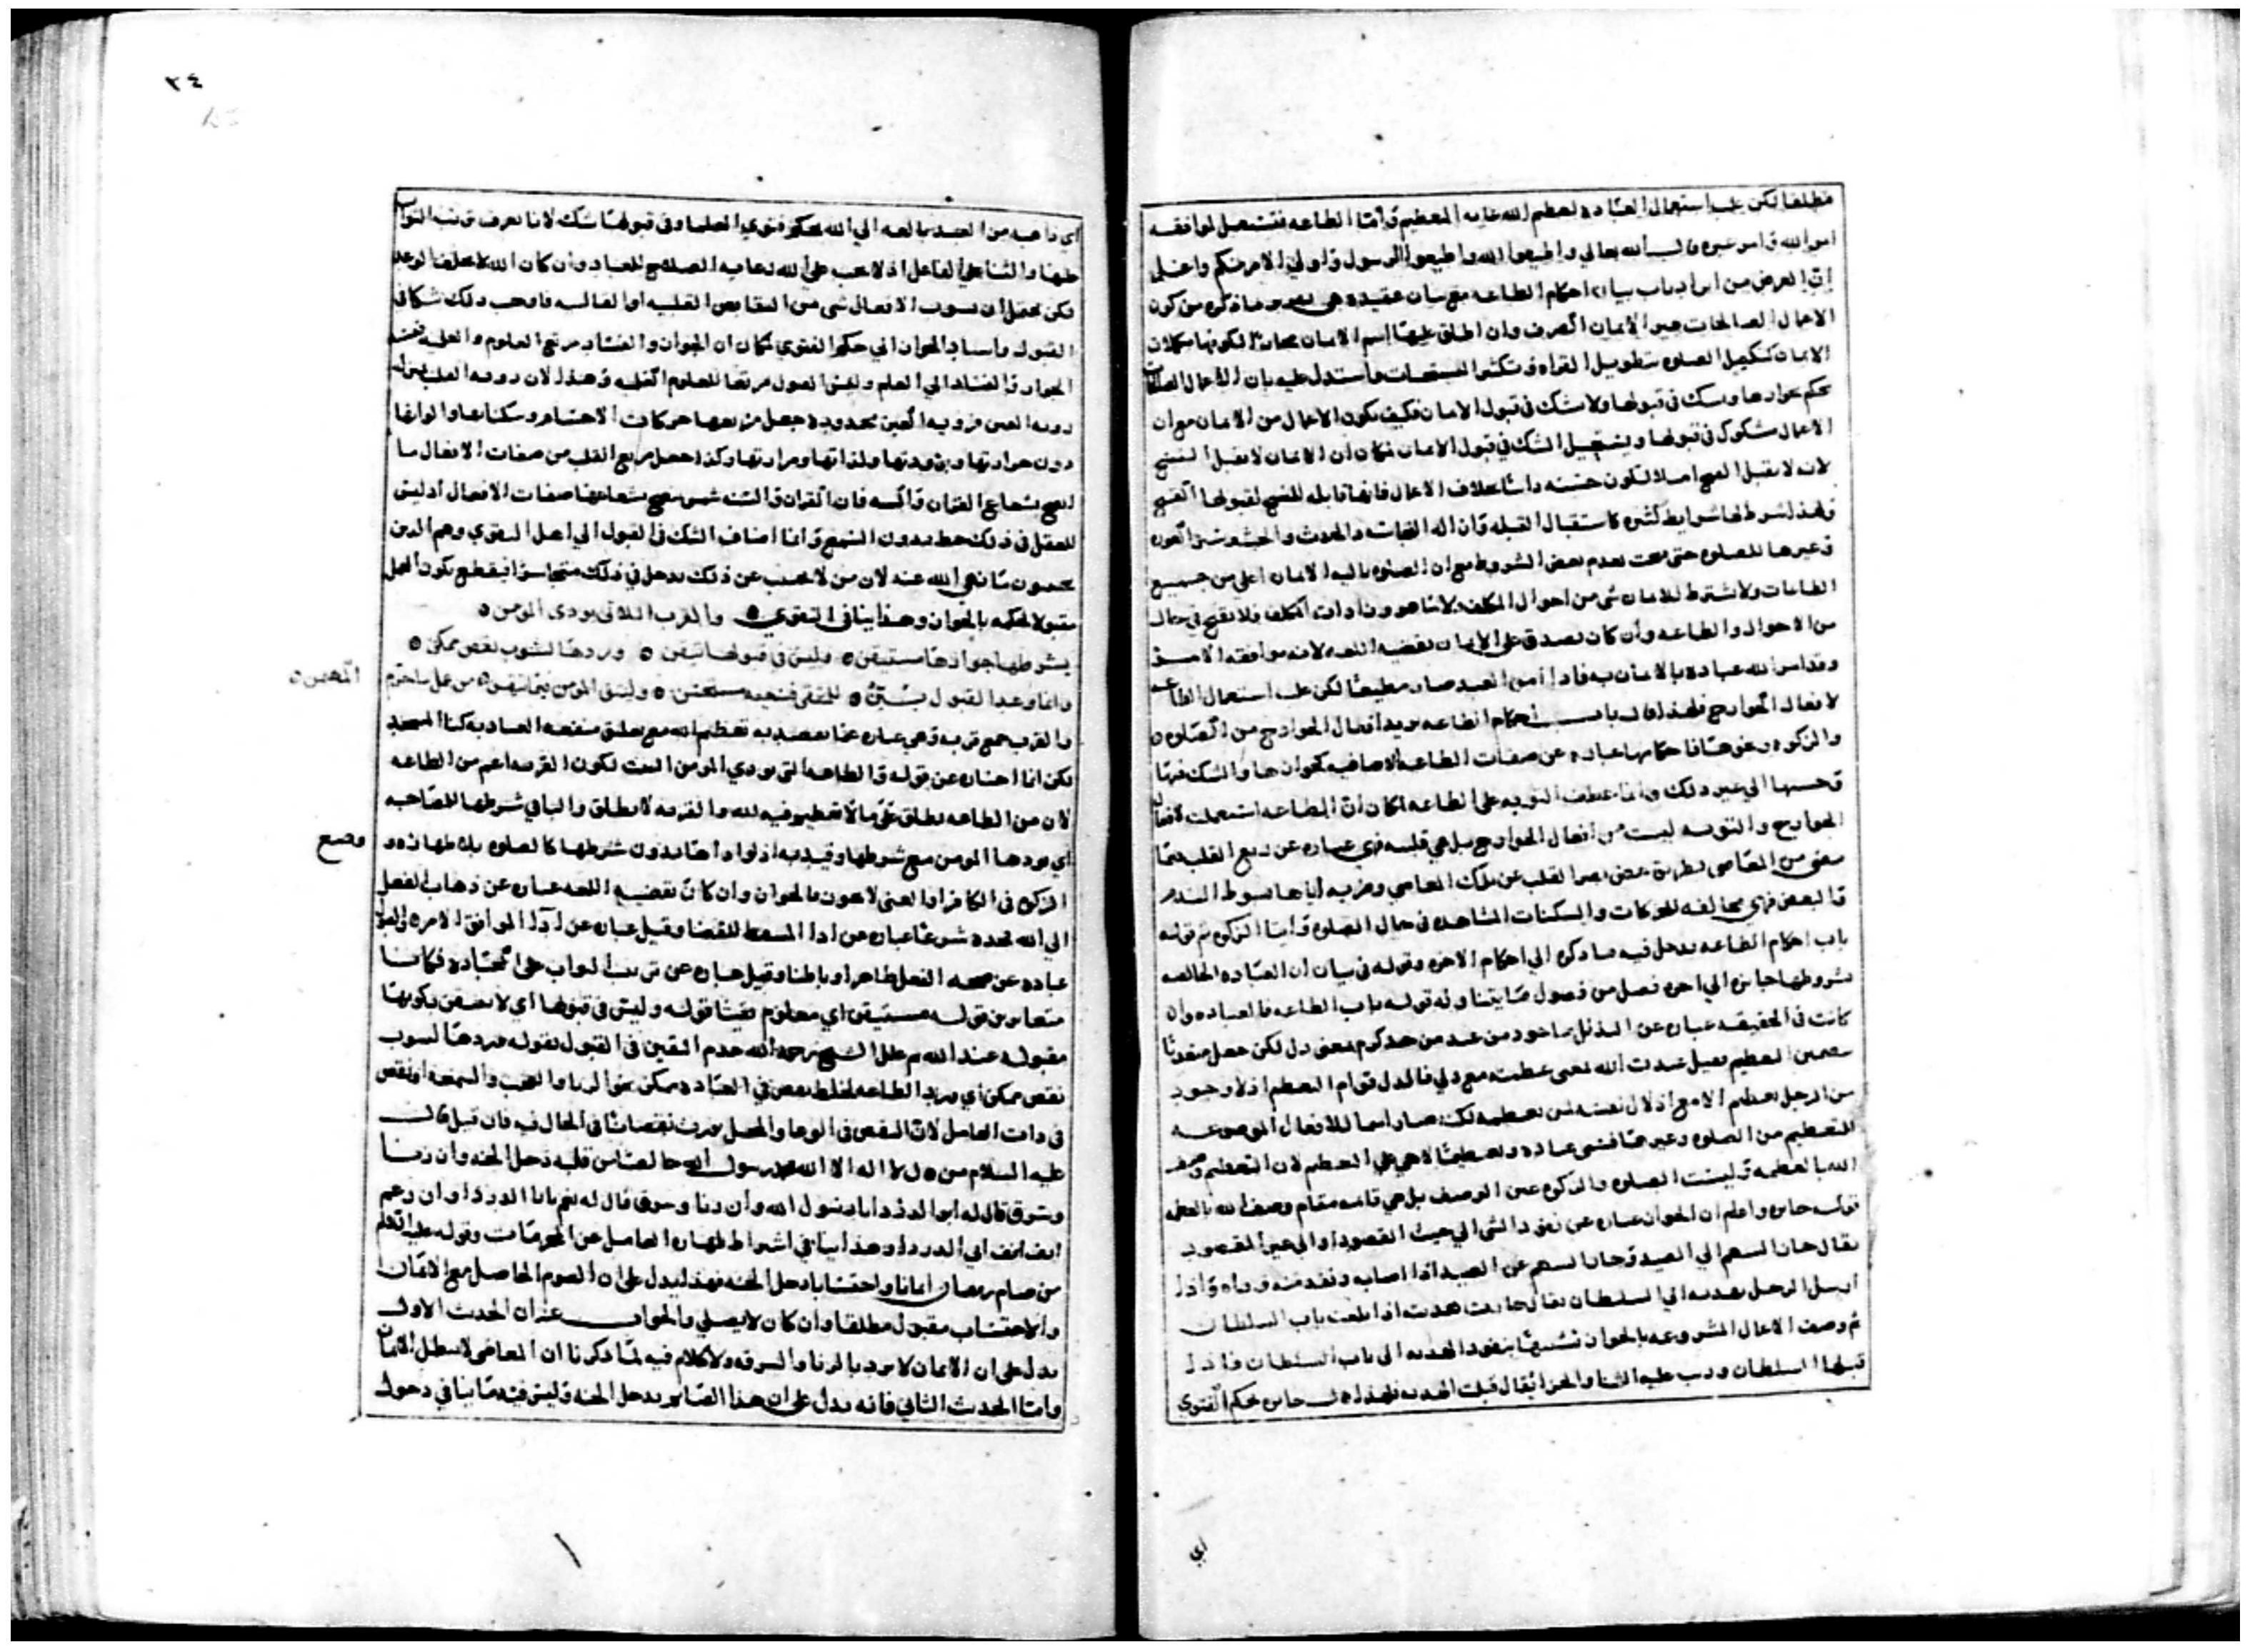 مطلقا لكن غلب استعمال العبادة لتعظيم الله غاية التعظيم وأما الطاعه فتستعمل لموافقه
امر الله وامر غيره قال الله تعالي واطيعوا الله واطيعوا الرسول واولي الامر منكم واعلم
ان الغرض من ايراد باب بيان احكام الطاعه مع بيان عقيدة هي ما ذكره من كون
الاعمال الصالحات غير الايمان الصرف وان اطلق عليها اسم الايمان مجازا لكونها مكملات
الايمان كتكميل الصلوه بتطويل القراه وتكثير التسبيحات واستدل عليه بان الاعمال الصالحات
يحكم بجوازها ويشك في قبولها ولا شك في قبول الايمان فكيف يكون الاعمال من الايمان مع ان
الاعمال مشكوك في قبولها ويستحيل الشك في قبول الايمان فكان ان الايمان لا يقبل النسخ
لانه لا يقبل القبح اصلا لكون حسنه ذاتيا بخلاف الاعمال فانها قابله للنسخ لقبولها القبح
ولهذا شرط لها شرايط كثيره كاستقبال القبله وازاله النجاسه والحدث والخبث وستر العوره
وغيرها للصلوه حتى بعدم بعض الشروط مع ان الصلوه تاليه الايمان اعلى من جميع
الطاعات ولا يشترط للايمان شي من احوال المكلف فلا يقبح في حال
من الاحوال والطاعه وان كان يصدق على الايمان بقضيه اللغه لانه موافقه الامر
وقد امر الله عباده بالايمان به فاذا امن العبد صار مطيعا لكن غلب استعمال الطاعه
لافعال الجوارح فلهذا قال باب احكام الطاعه يريد افعال الجوارح من الصلوه
والزكوه ونحوهما فاحكامها عباره عن صفات الطاعه الاضافيه كجوازها والشك فيها
وحسنها الي غير ذلك وانما عطف التوبه على الطاعه لما كان ان الطاعه استعملت لافعال
الجوارح والتوبه ليست من افعال الجوارح بل هي قلبيه فهي عباره عن رجع القلب عما
مضى من المعاصي بطريق بصر القلب عن تلك المعاصي وضربه اياها بسوط الندم
والبغض فهي مخالفه للحركات والسكنات المشاهده في حال الصلوه وايتا الزكوه ثم قوله
باب احكام الطاعه يدخل فيه ما ذكره الي احكام الاخره وقوله في بيان ان العباده الخالصه
بشروطها جايزه الي اخره فصل من فصول ما يتناوله قوله باب الطاعه فالعباده وان
كانت في الحقيقه عباره عن التذلل ماخوذ من عبد من حد كرم بمعنى ذل لكن جعل متعديا
بتضمين التعظيم فقيل عبدت الله بمعنى عظمته مع ذلي فالذل قوام التعظيم اذ لا وجود
من الرجل تعظيم الا مع اذلال نفسه لمن يعظمه لكنه صار اسما للافعال الموضوعه
للتعظيم من الصلوه وغيرها فتسمى عباده وتعظيما لا هي عين التعظيم لان التعظيم وصف
الله بالعظمه وليست الصلوه والزكوه عين الوصف بل هي قايمه مقام وصف الله بالفعل
قوله جايزه واعلم ان الجواز عباره عن نفوذ الشي الي حيث القصود او الي عين المقصود
يقال جاز السهم الي الصيد وجاز السهم عن الصيد اذا اصابه ونفذ منه ووراه واذا
ارسل الرجل بهديه الي السلطان يقال جازت هديته اذا بلغت باب السلطان
ثم وصف الاعمال المشروعه بالجواز تشبيها بنفوذ الهديه الى باب السلطان فاذا
قبلها السلطان ورتب عليه الثنا والجزا يقال قبلت الهديه فلهذا قال جايزه بحكم الفتوي
اي
٣٤
اي ذاهبه من العبد بالغه الي الله بحكم فتوي العلما وفي قبولها شك لانا لا نعرف ترتب الثواب
عليها والثنا علي الفاعل اذ لا يجب علي الله رعايه الصلاح للعباد وان كان الله لا يخلف الوعد
لكن يحتمل ان يشوب الافعال شي من النقايص القلبيه او القالبيه فاوجب ذلك شكا في
القبول واسناد الجواز الي حكم الفتوي لمكان ان الجواز والفساد مرتع العلوم والعلم يقتضيه
الجواز والفساد الي العلم وليس القبول مرتعا للعلوم القلبيه وهذا لان رويه القلب بمنزله
رويه العين فرويه العين محدوده جعل مرتعها حركات الاجسام وسكناتها والوانها
دون حرارتها وبرودتها ولذاتها ومرارتها وكذا جعل مرتع القلب من صفات الافعال ما
يتضح بشعاع القران والسنه فان القران والسنه شمس يتضح بشعاعها صفات الافعال اذ ليس
للعقل في ذلك حظ بدون السمع وانما اضاف الشك في القبول الي اهل التقوي وهم الذين
يجتنبون ما نهي الله عنه لان من لا يجتنب عن ذلك يدخل في ذلك متجاسرا فيقطع بكون العمل
مقبولا لحكمه بالجواز وهذا ينافي التقوي ٥ والقرب اللاتي يودي المومن ٥
بشرطها جوازها مستيقن ٥ وليس في قبولها تيقن ٥ وردها لشوب نقص ممكن ٥
وانما وعد القبول بيّن ٥ للمتقي فنعيه مستحسن ٥ وليتق المومن فيما يتقن ٥ من عمل ما حرم
المهيمن ٥
والقرب جمع قربه وهي عباره عما يقصد به تعظيم الله مع تعلق منفعه العباد به كبنا المسجد
لكن انما اختاره عن قوله والطاعه التي يودي المومن البيت لكون القربه اعم من الطاعه
لان من الطاعه يطلق على ما لا تعظيم فيه لله والقربه لا يطلق والبا في شرطها للمصاحبه
اي يودها المومن مع شرطها وقيد به اذ لو اداها بدون شرطها كالصلوه بلا طهاره و
وضع
الزكوه في الكافر او الغني لا يعون بالجواز وان كان بقضيه اللغه عباره عن ذهاب الفعل
الي الله لكنه شرعا عباره عن ادا المسقط للقضا وقيل عباره عن ادا الموافق الامر والقبول
عباره عن صحه الفعل ظاهرا وباطنا وقيل عباره عن ترتب الثواب على العباده فكانا
متغايرين قوله مستيقن اي معلوم يقينا قوله وليس في قبولها اي لا يتيقن بكونها
مقبوله عند الله ثم علل الشيخ رحمه الله عدم اليقين في القبول بقوله وردها لشوب
نقص ممكن اي ورد الطاعه لخلط نقص في العباده ممكن نحو الريا والعجب والسمعه او نقص
في ذات العامل لان النقص في الوعا والمحل يورث نقصانا في الحال فيه فان قيل قال
عليه السلام من قال لا اله الا الله محمد رسول الله خالصا من قلبه دخل الجنه وان زنا
وسرق قال له ابو الدردا يا رسول الله وان زنا وسرق قال له نعم يا ابا الدردا وان رغم
انف انف ابي الدردا وهذا ينافي اشتراط طهاره العامل عن المحرمات وقوله عليه السلم
من صام رمضان ايمانا واحتسابا دخل الجنه فهذا يدل على ان الصوم الحاصل مع الايمان
والاحتساب مقبول مطلقا وان كان لا يصلي والجواب عنه ان الحديث الاول
يدل على ان الايمان لا يرد بالزنا والسرقه ولا كلام فيه لما ذكرنا ان المعاصي لا تبطل الايمان
واما الحديث الثاني فانه يدل على ان هذا الصايم يدخل الجنه وليس فيه ما ينافي دخول